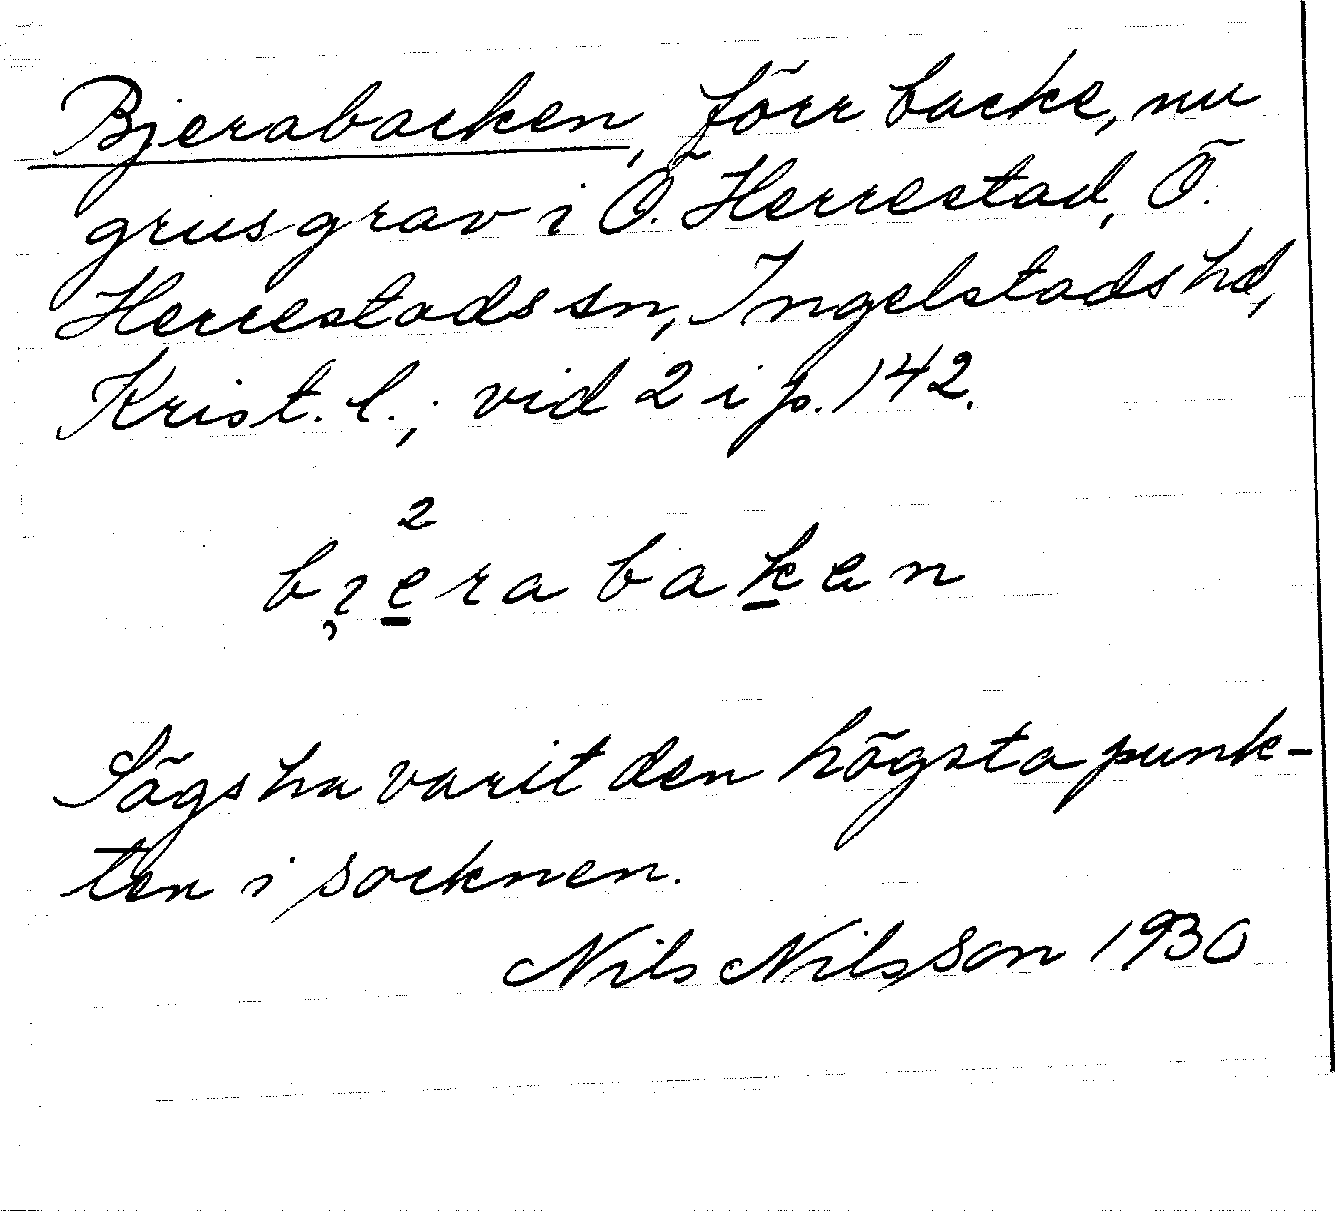 Bjerabacken, förr backe, nu
grusgrav i Ö. Herrestad, Ö.
Herrestads sn, Ingelstads hd,
Krist. l.; vid 2 i p. 142.
2
bi̯e̱raba<u>k</u>en
Sägs ha varit den högsta punk-
ten i socknen.
Nils Nilsson 1930